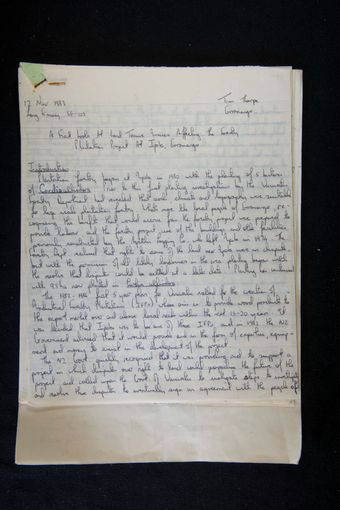 17 Nov 1983
Tim Thorpe
Erromango
A First Look at Land Tenure Issues Affecting The Forestry
Plantation Project At Ipota, Erromango
Introduction
Plantation forestry began at Ipota in 1980 with the planting of 5 hectares
of Cordia alliodora. Prior to this first planting investigations by the Vanuatu
Forestry Department had revealed that soils, climate and topography were suitable
for large scale plantation forestry. While some of the local people of Erromango re-
cognising the benefits that would accrue from the forestry project were prepared to
provide labour and the forestry project use of the buildings and other facilities
previously constructed by the logging company who left Ipota in 197
dept. realised that rights to some of the land near Ipota were in dispute
and with the permission of all likely landowners in the area planting began with
the resolve that disputes would be settled at a later date. Planting has continued
with 95 ha now planted in
The 1982-1986 first 5 year plan for Vanuatu called for the creation of
Industrial Forestry Plantations (IFPs) whose aim is to provide wood products to
the export market over and above local needs within the next 15-20 years. It
was decided that Ipota was to be one of these IFPs and in 1982 the NZ
Government advised that it would provide aid in the form of expertise, equip-
ment and money to assist in the development of the project.
The NZ Govt. quickly recognised that it was providing aid to support a
project in which disputes over right to land could jeopardise the future of the
project and called upon the Govt. of Vanuatu to instigate steps to investigate
and resolve these disputes to eventually sign an agreement with the people of